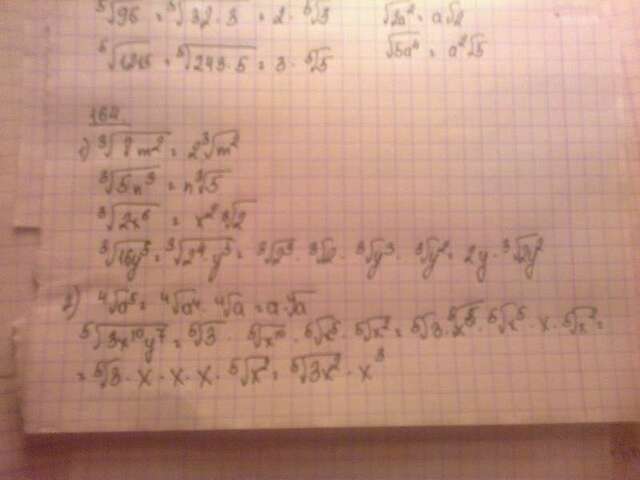 ⁵√96 = ⁵√32·3 = 2·⁵√3 √2a² = a√2
⁵√1215 = ⁵√243·5 = 3·⁵√5 √5a⁴ = a²√5
164.
³√8m² = 2³√m²
³√5n³ = n³√5
³√2x⁶ = x²³√2
³√16y⁵ = ³√2⁴·y⁵ = ³√2³·³√2·³√y³·³√y² = 2y·³√2y²
⁴√a⁵ = ⁴√a⁴·⁴√a = a·⁴√a
⁵√3x¹⁰y⁷ = ⁵√3·⁵√x¹⁰·⁵√x⁵·⁵√x² = ⁵√3·⁵√x⁵·⁵√x⁵·x·⁵√x² =
= ⁵√3·x·x·x·⁵√x² = ⁵√3x²·x³